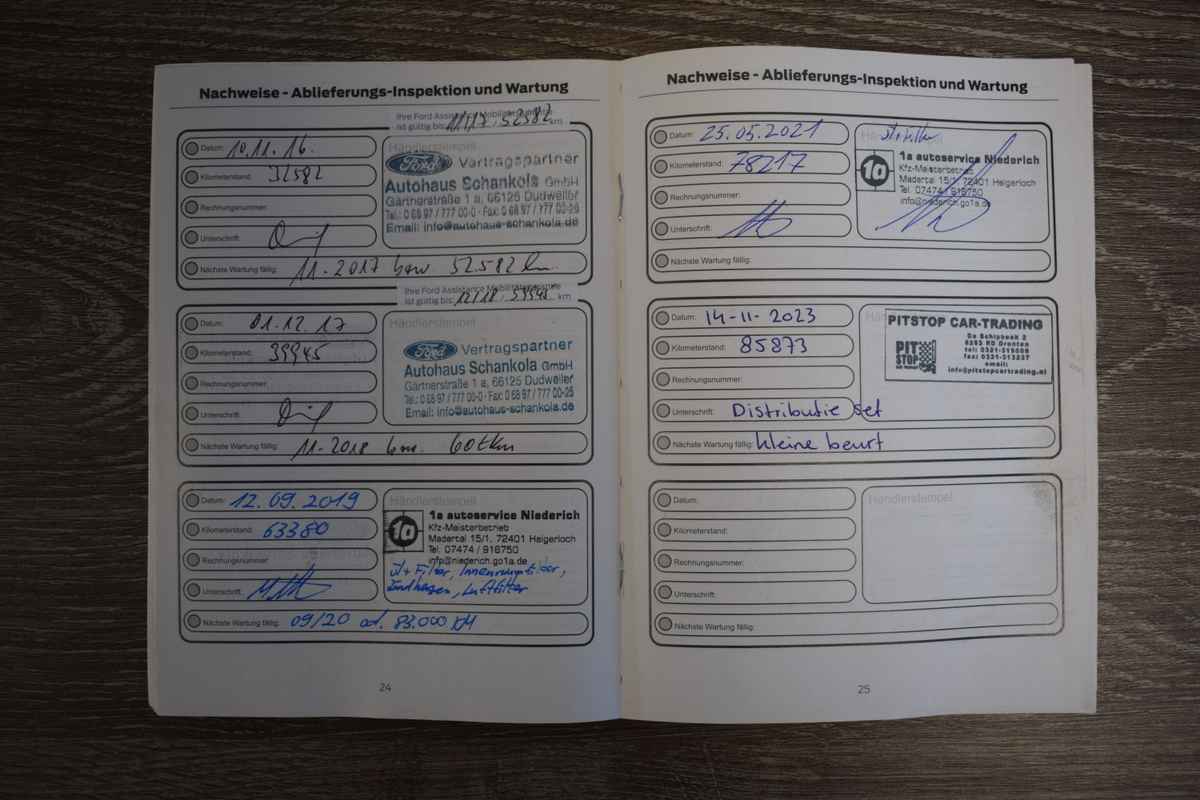 Nachweise - Ablieferungs-Inspektion und Wartung
Ihre Ford Assistance Mobilitätsgarantie
ist gültig bis: 11/17 . 52582 km
Datum: 10.11.16.
Händlerstempel
Kilometerstand: 32582
Ford Vertragspartner
Autohaus Schankola GmbH
Rechnungsnummer:
Gärtnerstraße 1 a, 66125 Dudweiler
Tel.: 0 68 97 / 777 00-0 · Fax: 0 68 97 / 777 00-25
Unterschrift:
Email: info@autohaus-schankola.de
Nächste Wartung fällig: 11-2017 bzw. 52.582 km
Ihre Ford Assistance Mobilitätsgarantie
ist gültig bis: 12/18 . 59945 km
Datum: 01.12.17
Händlerstempel
Kilometerstand: 39945
Ford Vertragspartner
Autohaus Schankola GmbH
Rechnungsnummer:
Gärtnerstraße 1 a, 66125 Dudweiler
Tel.: 0 68 97 / 777 00-0 · Fax: 0 68 97 / 777 00-25
Unterschrift:
Email: info@autohaus-schankola.de
Nächste Wartung fällig: 11-2018 bzw. 60tkm
Datum: 12.09.2019
Händlerstempel
Kilometerstand: 63380
1a autoservice Niederich
1a
Kfz-Meisterbetrieb
Madertal 15/1, 72401 Haigerloch
Tel. 07474 / 916750
info@niederich.go1a.de
Rechnungsnummer:
Öl + Filter, Innenraumfilter,
Zündkerzen, Luftfilter
Unterschrift:
Nächste Wartung fällig: 09/20 od. 83.000 KM
24
Nachweise - Ablieferungs-Inspektion und Wartung
Datum: 25.05.2021
Kilometerstand: 78217
1a autoservice Niederich
1a
Kfz-Meisterbetrieb
Madertal 15/1, 72401 Haigerloch
Tel. 07474 / 916750
info@niederich.go1a.de
Rechnungsnummer:
Unterschrift:
Nächste Wartung fällig:
Datum: 14-11-2023
Händlerstempel
Kilometerstand: 85873
PITSTOP CAR-TRADING
PIT
STOP
De Schipbeek 2
fax: 0321-313237
email:
info@pitstopcartrading.nl
Rechnungsnummer:
Unterschrift: Distributie set
Nächste Wartung fällig: kleine beurt
Datum:
Händlerstempel
Kilometerstand:
Rechnungsnummer:
Unterschrift:
Nächste Wartung fällig:
25